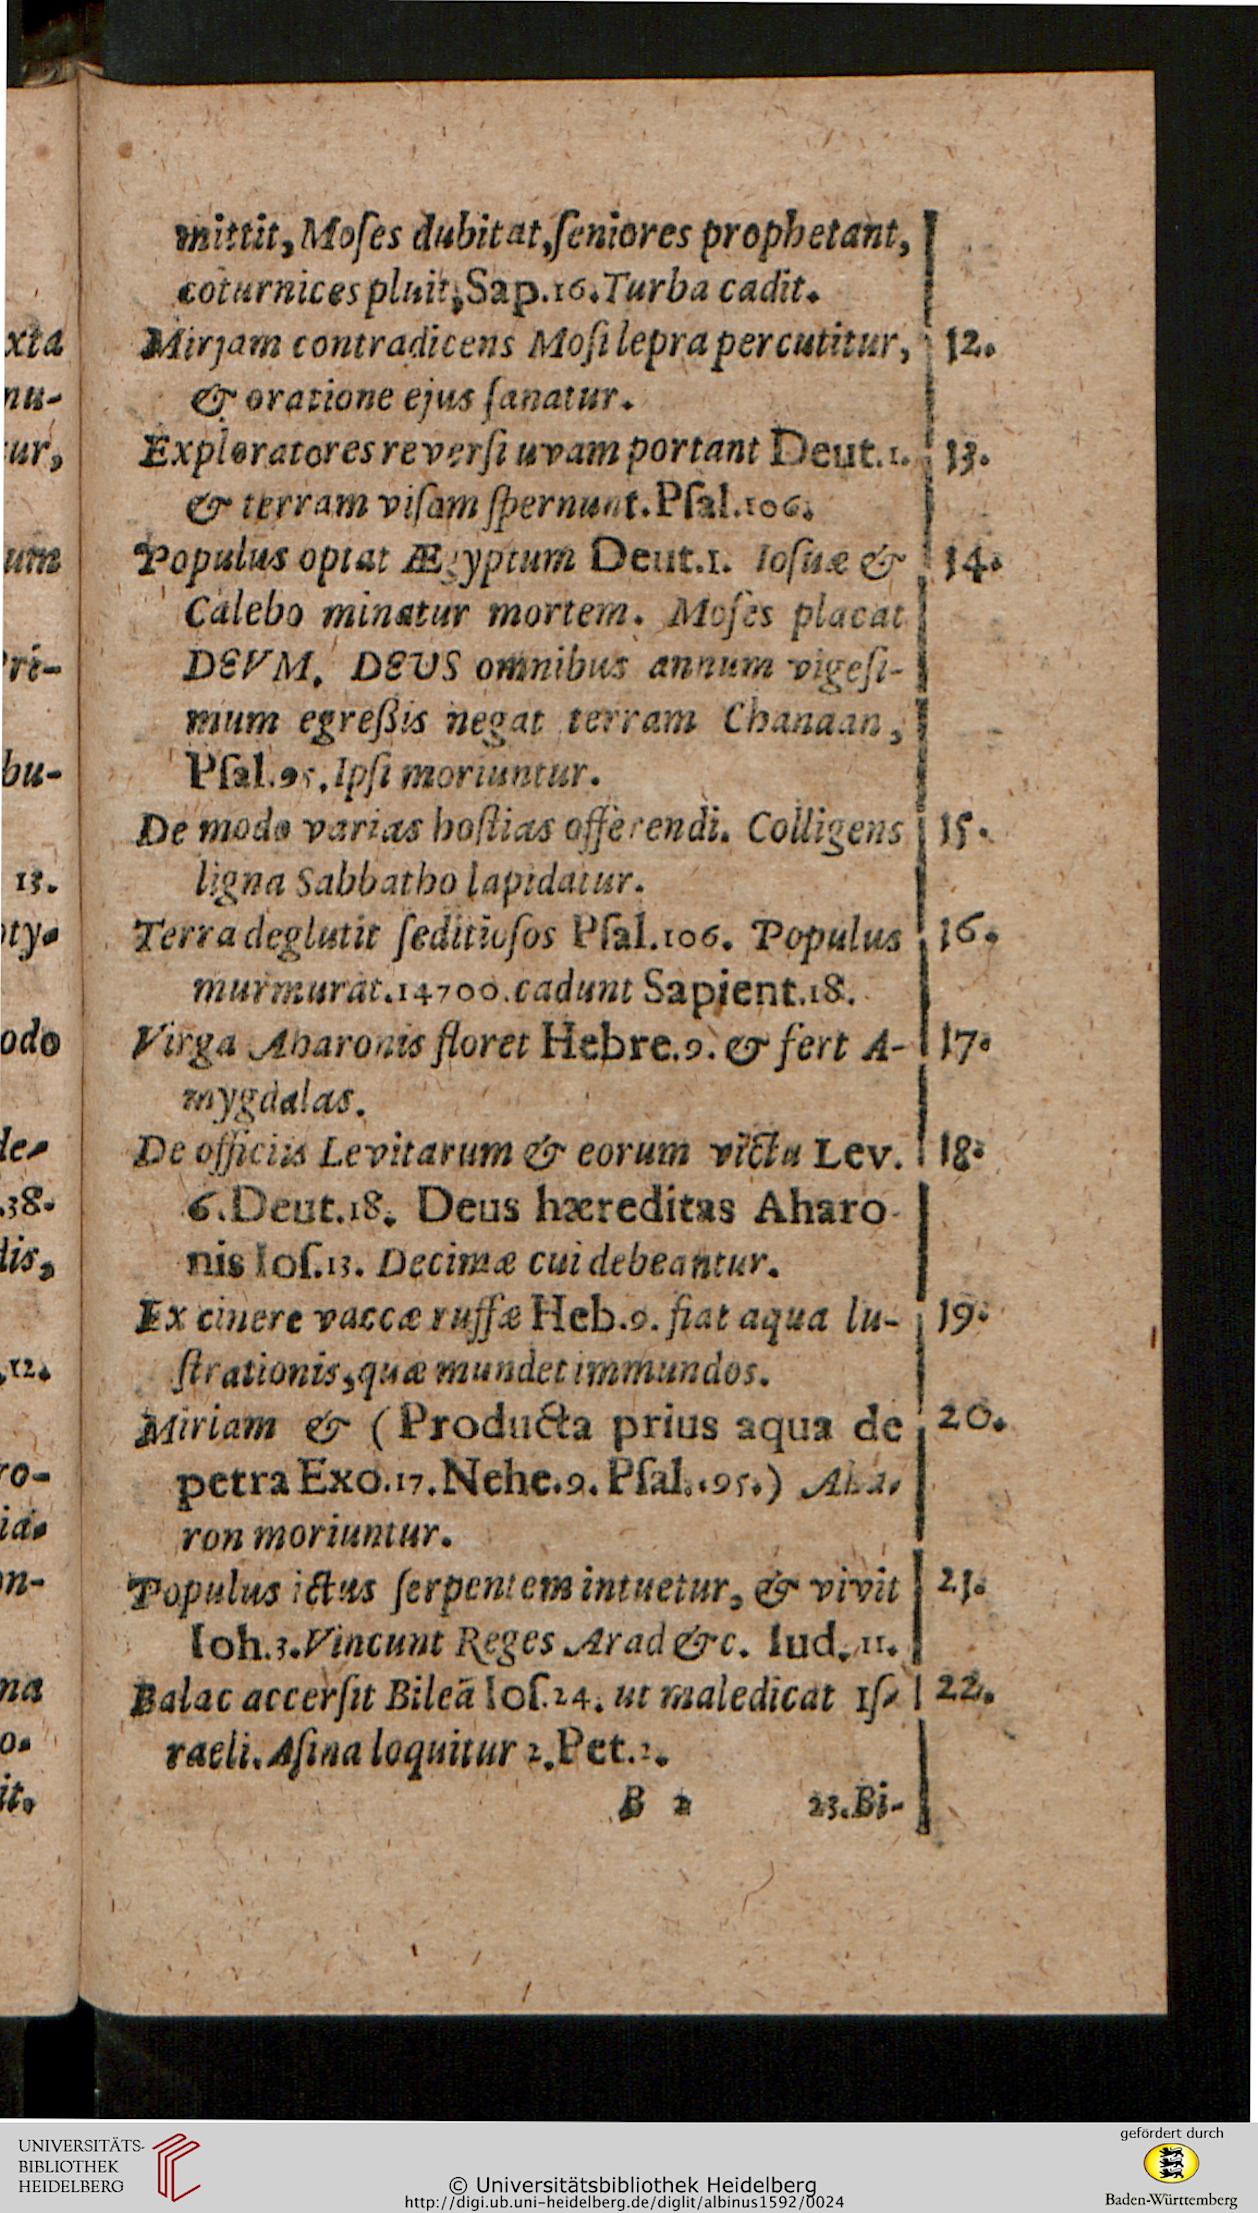 mittit, Moſes dubitat, ſeniores prophetant,
coturnices pluit, Sap.16. Turba cadit.
Mirjam contradicens Moſi lepra percutitur, 12.
& oratione ejus ſanatur.
Exploratores reverſi uvam portant Deut.1. 13.
& terram viſam ſpernunt. Pſal.106.
Populus optat Ægyptum Deut.1. Ioſuæ & 14.
Calebo minatur mortem. Moſes placat
DEVM. DEUS omnibus annum vigeſi-
mum egreßis negat terram Chanaan,
Pſal.95. Ipſi moriuntur.
De modo varias hoſtias offerendi. Colligens 15.
ligna Sabbatho lapidatur.
Terra deglutit ſeditioſos Pſal.106. Populus 16.
murmurat. 14700. cadunt Sapient.18.
Virga Aharonis floret Hebre.9. & fert A- 17.
mygdalas.
De officiis Levitarum & eorum victu Lev. 18.
6. Deut.18. Deus hæreditas Aharo-
nis Ioſ.13. Decimæ cui debeantur.
Ex cinere vaccæ ruffæ Heb.9. fiat aqua lu- 19.
ſtrationis, quæ mundet immundos.
Miriam & (Producta prius aqua de 20.
petra Exo.17. Nehe.9. Pſal.95.) Aha-
ron moriuntur.
Populus ictus ſerpentem intuetur, & vivit 21.
Ioh.3. Vincunt Reges Arad &c. Iud. 11.
Balac accerſit Bileã Ioſ.24. ut maledicat Iſ- 22.
raeli. Aſina loquitur 2. Pet.2.
B 2 23. Bi-
xta
nu-
ur,
um
ri-
bu-
13.
ty-
odo
de-
38.
dis,
12.
ro-
ia-
on-
na
o.
it.
UNIVERSITÄTS-
BIBLIOTHEK
HEIDELBERG
© Universitätsbibliothek Heidelberg
http://digi.ub.uni-heidelberg.de/diglit/albinus1592/0024
gefördert durch
Baden-Württemberg